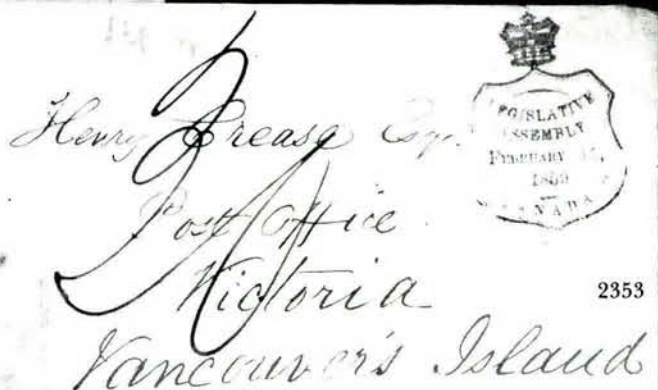 Henry Crease Esq.
Post Office
Victoria
Vancouver's Island
LEGISLATIVE
ASSEMBLY
FEBRUARY
1859
CANADA
2353